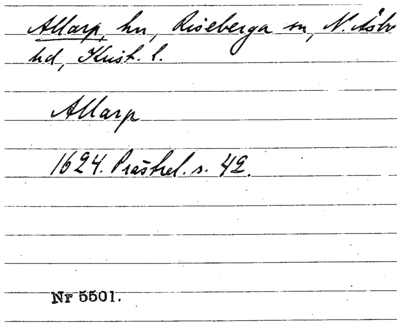 Allarp, hn, Riseberga sn, N. Åsbo
hd, Krist. l.
Allarp
1624. Prästrel. s. 42.
Nr 5501.